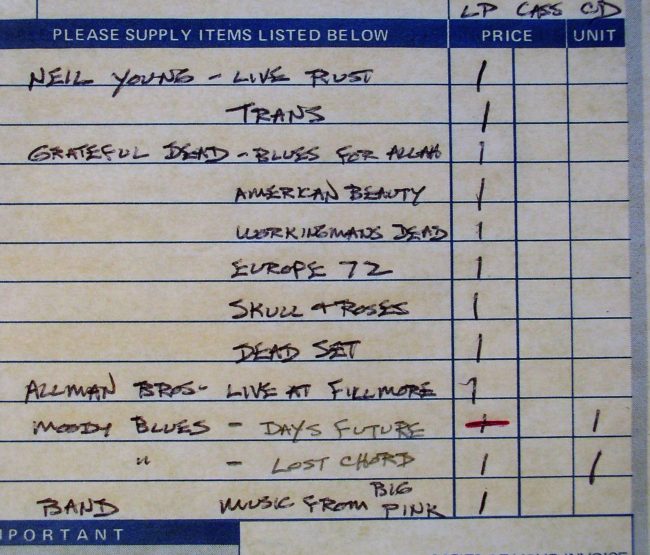 LP CASS CD
PLEASE SUPPLY ITEMS LISTED BELOW PRICE UNIT
NEIL YOUNG - LIVE RUST 1
TRANS 1
GRATEFUL DEAD - BLUES FOR ALLAH 1
AMERICAN BEAUTY 1
WORKINGMANS DEAD 1
EUROPE 72 1
SKULL + ROSES 1
DEAD SET 1
ALLMAN BROS- LIVE AT FILLMORE 1
MOODY BLUES - DAYS FUTURE 1 1
" - LOST CHORD 1 1
BAND MUSIC FROM BIG PINK 1
IMPORTANT